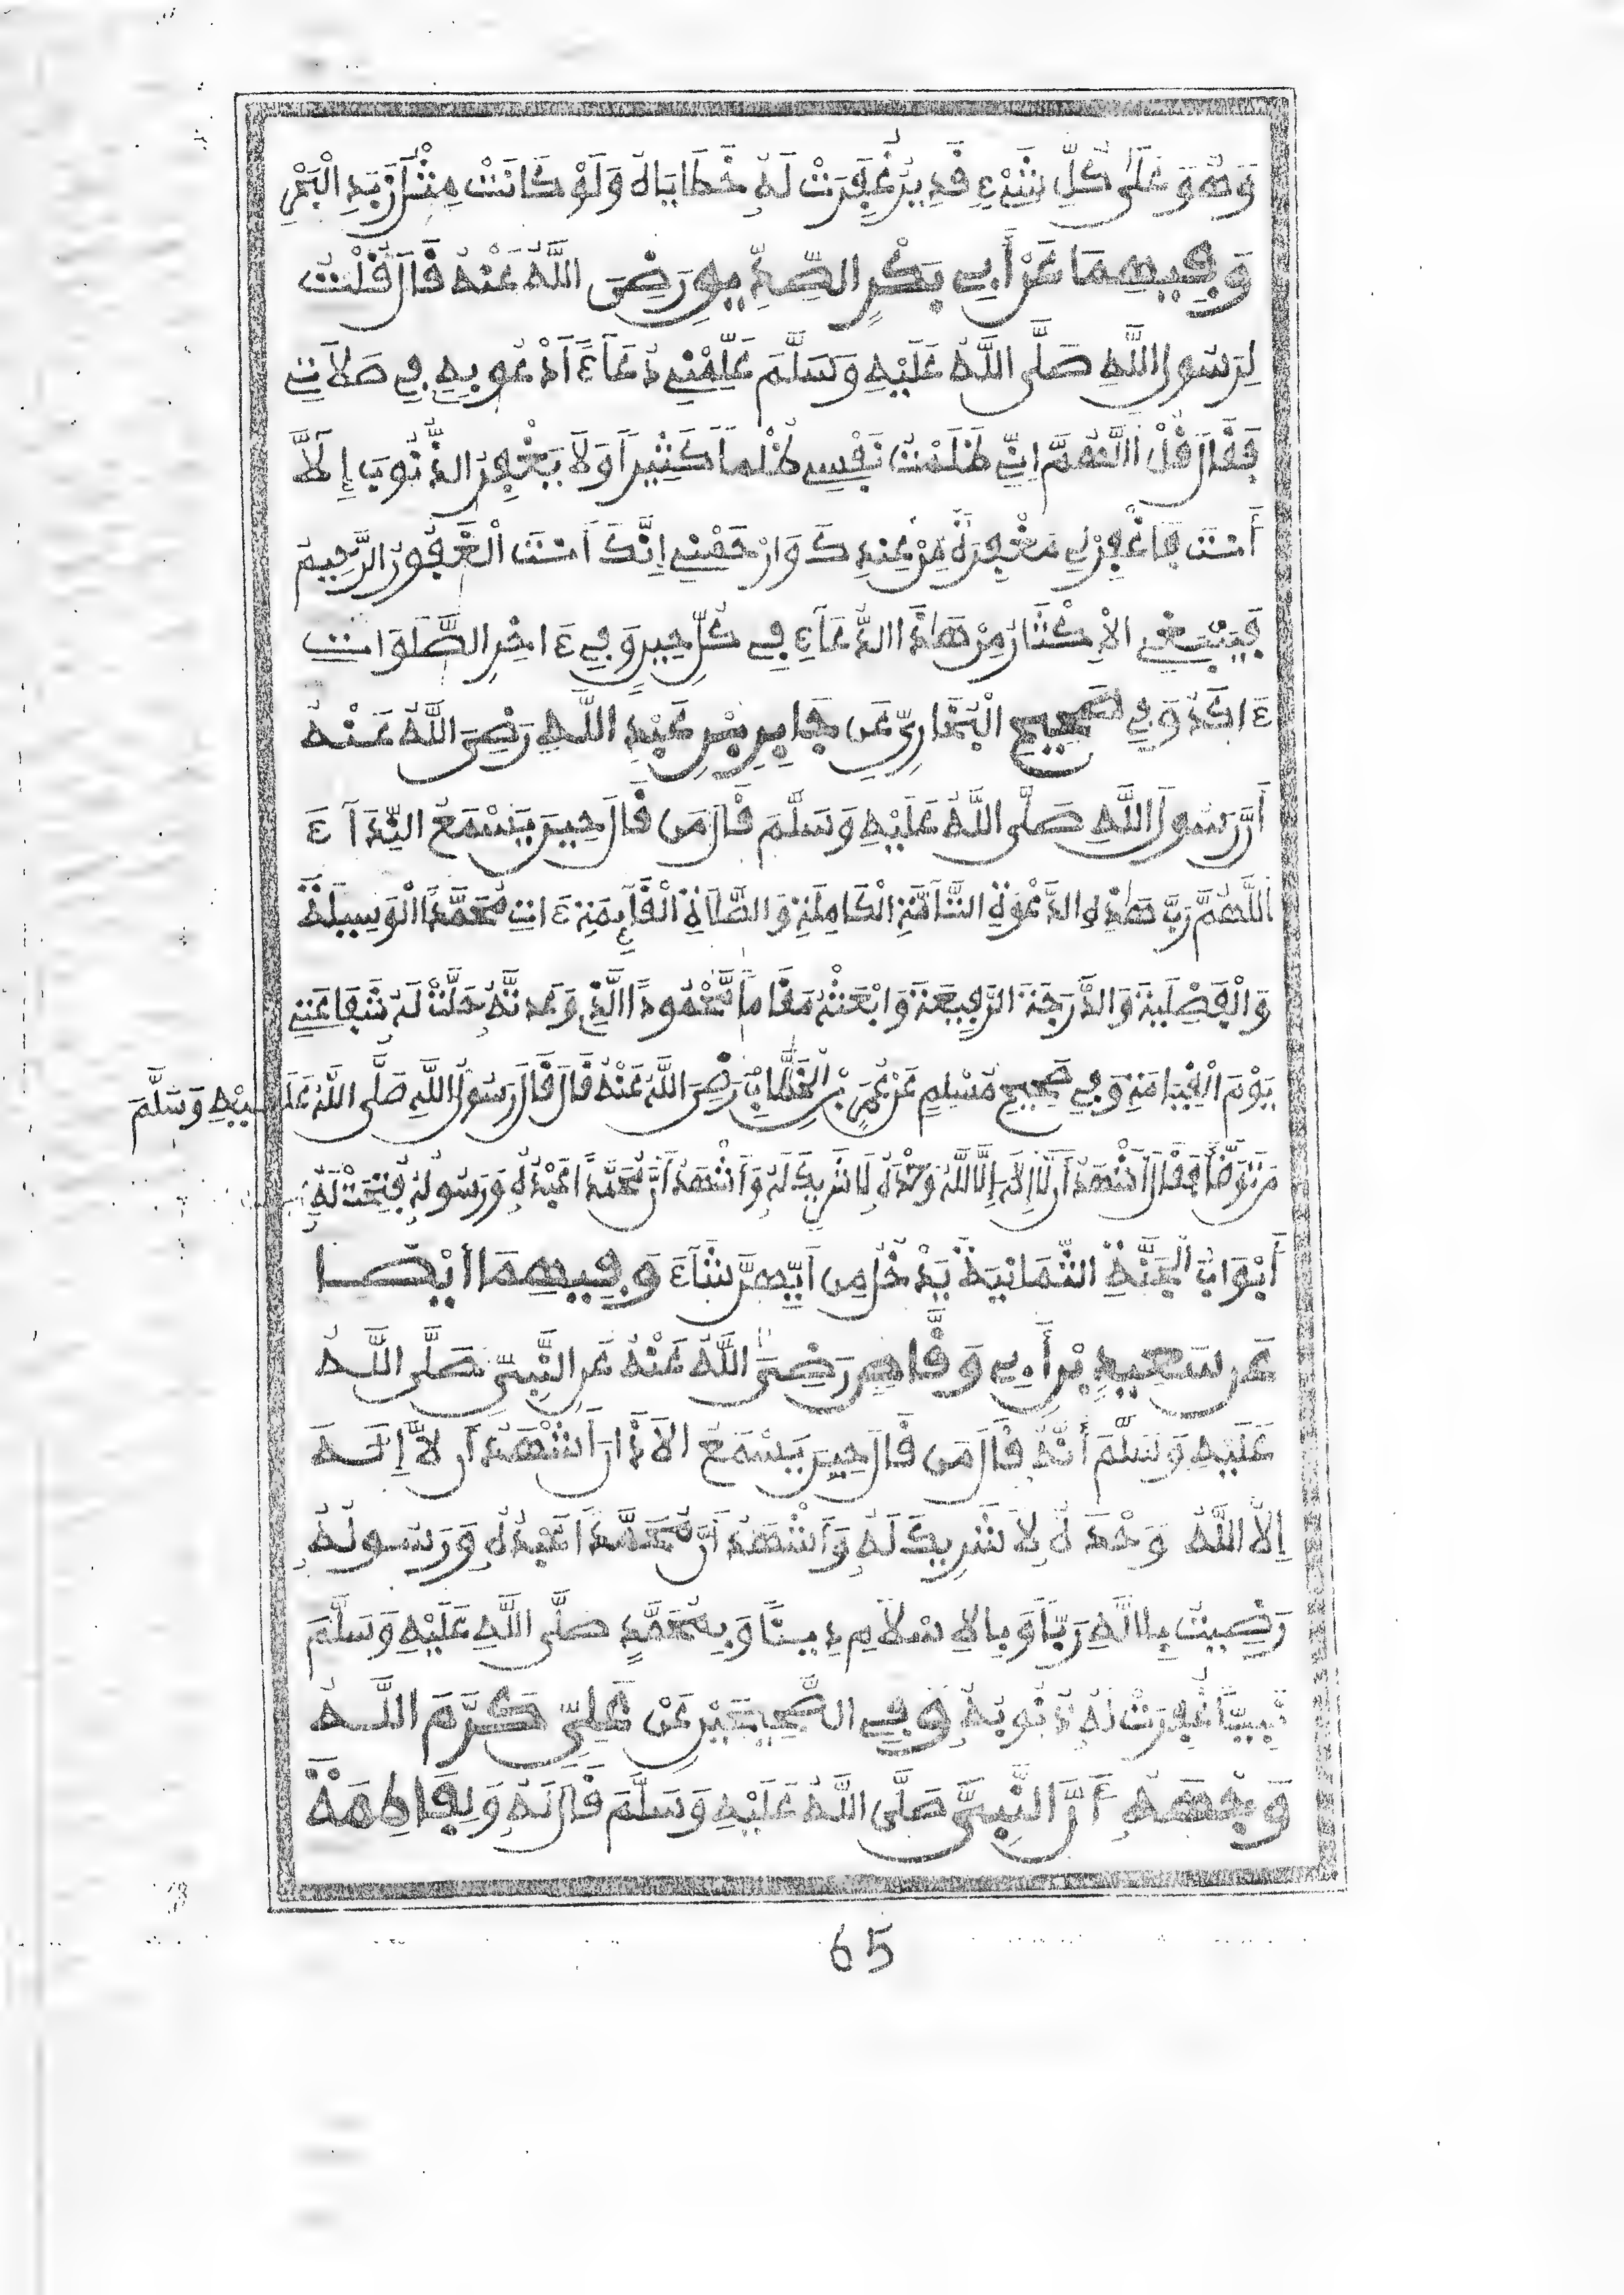 وَهُوَ عَلَىٰ كُلِّ شَيْءٍ قَدِيرٌ غُفِرَتْ لَهُ خَطَايَاهُ وَلَوْ كَانَتْ مِثْلَ زَبَدِ الْبَحْرِ
وَفِيهِمَا عَنْ أَبِي بَكْرٍ الصِّدِّيقِ رَضِيَ اللَّهُ عَنْهُ قَالَ قُلْتُ
لِرَسُولِ اللَّهِ صَلَّى اللَّهُ عَلَيْهِ وَسَلَّمَ عَلِّمْنِي دُعَآءً أَدْعُو بِهِ فِي صَلَاتِي
فَقَالَ قُلْ اَللَّهُمَّ اِنِّي ظَلَمْتُ نَفْسِي ظُلْماً كَثِيراً وَلَا يَغْفِرُ الذُّنُوبَ إِلَّا
أَنْتَ فَاغْفِرْلِي مَغْفِرَةً مِنْ عِنْدِكَ وَارْحَمْنِي اِنَّكَ اَنْتَ الْغَفُورُ الرَّحِيمُ
فَيَنْبَغِي الْاِكْثَارُ مِنْ هَٰذَا الدُّعَآءِ فِي كُلِّ حِينٍ وَفِي ءَاخِرِ الصَّلَوَاتِ
ءَاكَدُ وَفِي صَحِيحِ الْبُخَارِيِّ عَن جَابِرِ بْنِ عَبْدِ اللَّهِ رَضِيَ اللَّهُ عَنْهُ
أَنَّ رَسُولَ اللَّهِ صَلَّى اللَّهُ عَلَيْهِ وَسَلَّمَ قَالَ مَن قَالَ حِينَ يَسْمَعُ النِّدَآءَ
اَللَّهُمَّ رَبَّ هَٰذِهِ الدَّعْوَةِ التَّآمَّةِ الْكَامِلَةِ وَالصَّلَاةِ الْقَآئِمَةِ ءَاتِ مُحَمَّداً الْوَسِيلَةَ
وَالْفَضِيلَةَ وَالدَّرَجَةَ الرَّفِيعَةَ وَابْعَثْهُ مَقَاماً مَّحْمُوداً الَّذِي وَعَدتَّهُ حَلَّتْ لَهُ شَفَاعَتِي
يَوْمَ الْقِيَامَةِ وَفِي صَحِيحِ مُسْلِمٍ عَنْ عُمَرَ بْنِ الْخَطَّابِ رَضِيَ اللَّهُ عَنْهُ قَالَ قَالَ رَسُولُ اللَّهِ صَلَّى اللَّهُ عَلَيْهِ وَسَلَّمَ
مَن تَوَضَّأَ فَقَالَ اَشْهَدُ أَن لَّا إِلَهَ إِلَّا اللَّهُ وَحْدَهُ لَا شَرِيكَ لَهُ وَاَشْهَدُ أَنَّ مُحَمَّداً عَبْدُهُ وَرَسُولُهُ فُتِحَتْ لَهُ
أَبْوَابُ الْجَنَّةِ الثَّمَانِيَةُ يَدْخُلُ مِن اَيِّهِنَّ شَآءَ وَفِيهِمَا اَيْضًا
عَن سَعِيدِ بْنِ أَبِي وَقَّاصٍ رَضِيَ اللَّهُ عَنْهُ عَنِ النَّبِيِّ صَلَّى اللَّهُ
عَلَيْهِ وَسَلَّمَ أَنَّهُ قَالَ مَن قَالَ حِينَ يَسْمَعُ الْاَذَانَ اَشْهَدُ اَن لَّا إِلَهَ
اِلَّا اللَّهُ وَحْدَهُ لَا شَرِيكَ لَهُ وَاَشْهَدُ اَنَّ مُحَمَّداً عَبْدُهُ وَرَسُولُهُ
رَضِيتُ بِاللَّهِ رَبّاً وَبِالْاِسْلَامِ دِيناً وَبِمُحَمَّدٍ صَلَّى اللَّهُ عَلَيْهِ وَسَلَّمَ
نَبِيّاً غُفِرَتْ لَهُ ذُنُوبُهُ وَفِي الصَّحِيحَيْنِ عَنْ عَلِيٍّ كَرَّمَ اللَّهُ
وَجْهَهُ أَنَّ النَّبِيَّ صَلَّى اللَّهُ عَلَيْهِ وَسَلَّمَ قَالَ لَهُ وَلِفَاطِمَةَ
65